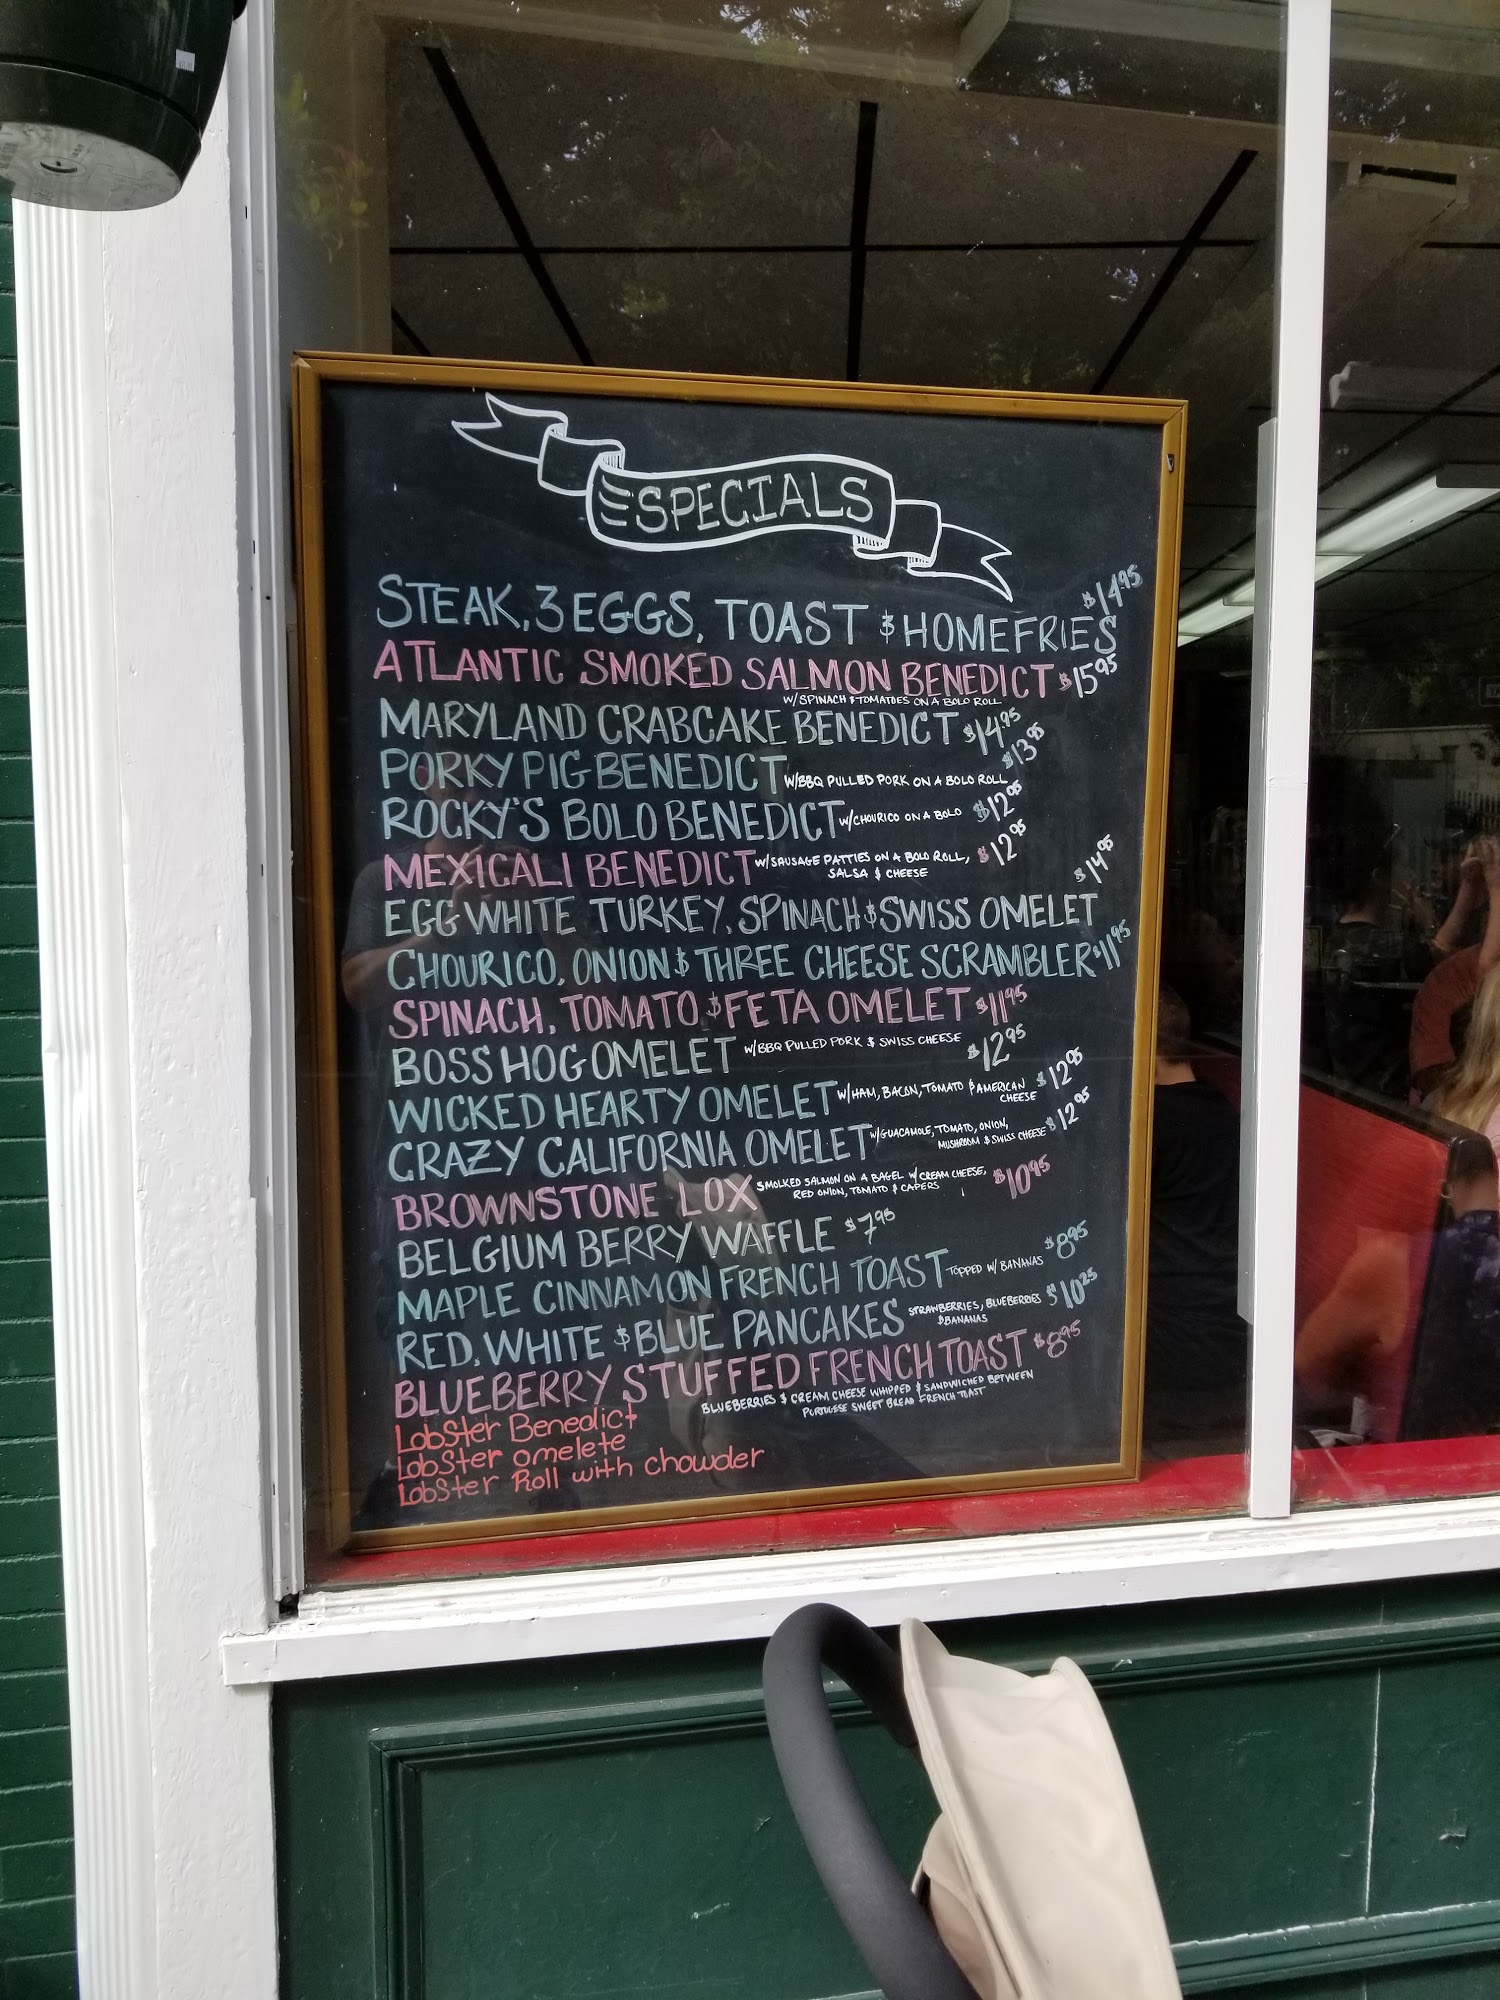 SPECIALS
STEAK, 3 EGGS, TOAST & HOMEFRIES $14.95
ATLANTIC SMOKED SALMON BENEDICT $15.95
W/SPINACH & TOMATOES ON A BOLO ROLL
MARYLAND CRABCAKE BENEDICT $14.95
PORKY PIG BENEDICT W/BBQ PULLED PORK ON A BOLO ROLL $13.95
ROCKY'S BOLO BENEDICT W/CHOURICO ON A BOLO $12.95
MEXICALI BENEDICT W/SAUSAGE PATTIES ON A BOLO ROLL, $12.95
SALSA & CHEESE
EGG WHITE TURKEY, SPINACH & SWISS OMELET $14.95
CHOURICO, ONION & THREE CHEESE SCRAMBLER $11.95
SPINACH, TOMATO, & FETA OMELET $11.95
BOSS HOG OMELET W/BBQ PULLED PORK & SWISS CHEESE $12.95
WICKED HEARTY OMELET W/HAM, BACON, TOMATO & AMERICAN $12.95
CHEESE
CRAZY CALIFORNIA OMELET W/GUACAMOLE, TOMATO, ONION, $12.95
MUSHROOM & SWISS CHEESE
BROWNSTONE LOX SMOLKED SALMON ON A BAGEL W/ CREAM CHEESE, $10.95
RED ONION, TOMATO & CAPERS
BELGIUM BERRY WAFFLE $7.95
MAPLE CINNAMON FRENCH TOAST TOPPED W/ BANANAS $8.95
RED, WHITE & BLUE PANCAKES STRAWBERRIES, BLUEBERRIES $10.25
& BANANAS
BLUEBERRY STUFFED FRENCH TOAST $8.95
BLUEBERRIES & CREAM CHEESE WHIPPED & SANDWICHED BETWEEN
PORTUGESE SWEET BREAD FRENCH TOAST
Lobster Benedict
Lobster omelete
Lobster Roll with chowder